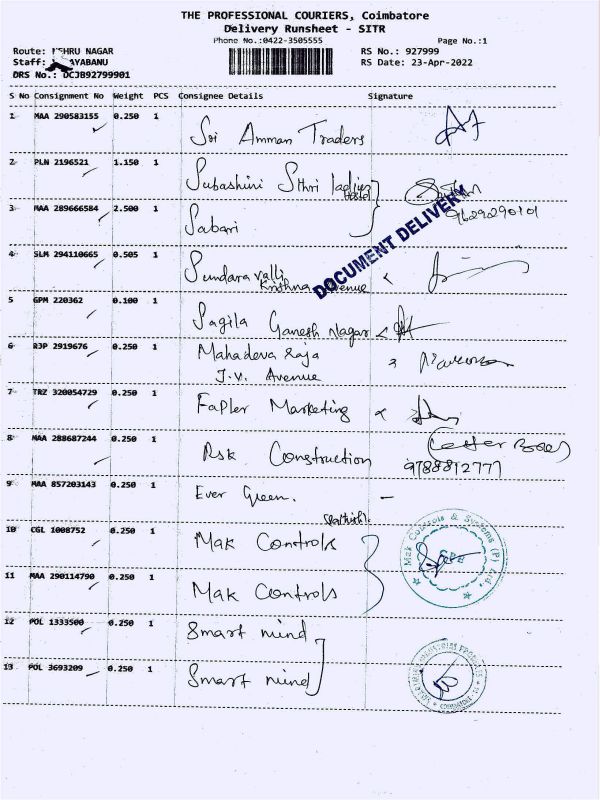 THE PROFESSIONAL COURIERS, Coimbatore
Delivery Runsheet - SITR
Phone No.:0422-3505555
Page No.:1
Route: NEHRU NAGAR
RS No.: 927999
Staff: AYABANU
RS Date: 23-Apr-2022
DRS No.: DCJB92799901
S No Consignment No Weight PCS Consignee Details Signature
1 MAA 290583155 0.250 1 Sri Amman Traders
2 PLN 2196521 1.150 1 Subashini Sthri ladies
Hostel
3 MAA 289666584 2.500 1 Sabari
9629290101
DOCUMENT DELIVERY
4 SLM 294110665 0.505 1 Sundaravalli
Krithna Avenue
5 GPM 220362 0.100 1 Sagila Ganesh Nagar
6 RJP 2919676 0.250 1 Mahadeva Raja
J.V. Avenue
7 TRZ 320054729 0.250 1 Fapler Marketing
8 MAA 288687244 0.250 1 Rsk Construction
9788812777
9 MAA 857203143 0.250 1 Ever Green. -
10 CGL 1008752 0.250 1 Mak Controls
Mak Controls & Systems (P) Ltd.
11 MAA 290114790 0.250 1 Mak Controls
12 POL 1333500 0.250 1 Smart mind
13 POL 3693209 0.250 1 Smart mind